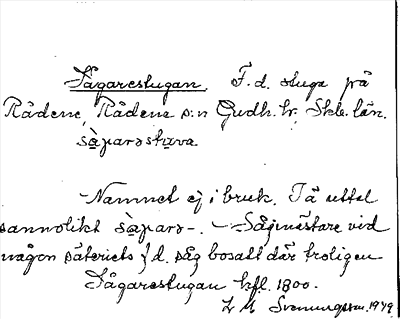 Sågarestugan. F.d. stuga på
Rådene, Rådene s:n Gudh. hr, Skb. län.
sàparəstuva
Namnet ej i bruk. Tä uttal
sannolikt sàparə-. – Sågmästare vid
någon säteriets f.d. såg bosatt där troligen
Sågarestugan kfl. 1800.
Svenungsson 1949